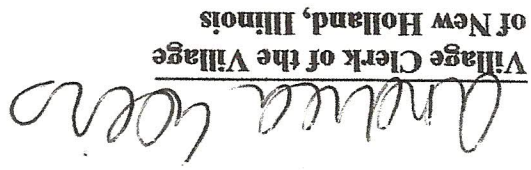 Andrea
Village Clerk of the Village
of New Holland, Illinois